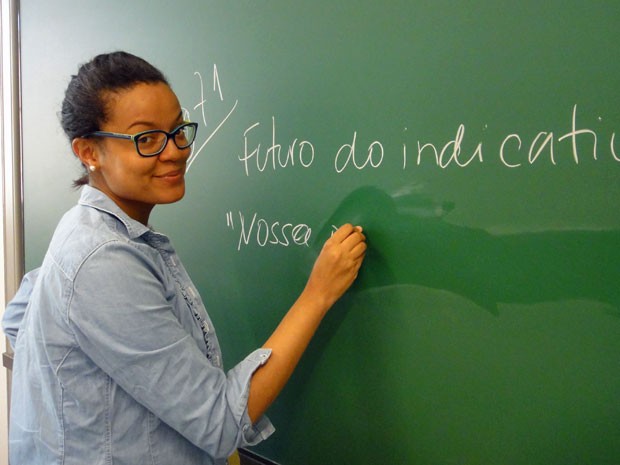 71
Futuro do indicativ
"Nossa